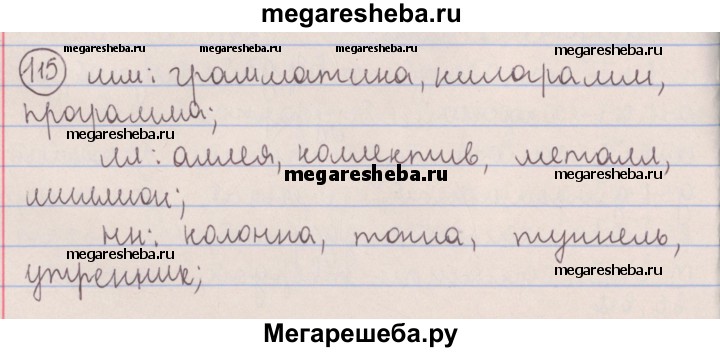 megaresheba.ru
megaresheba.ru megaresheba.ru megaresheba.ru
115 мм: грамматика, килограмм,
программа;
megaresheba.ru
лл: аллея, коллектив, металл,
megaresheba.ru megaresheba.ru
миллион;
нн: колонна, тонна, туннель,
утренник;
megaresheba.ru
Мегарешеба.ру